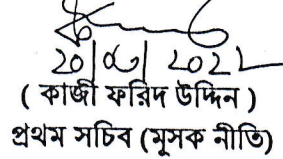 ২০|০৬|২০২২
( কাজী ফরিদ উদ্দিন )
প্রথম সচিব (মূসক নীতি)